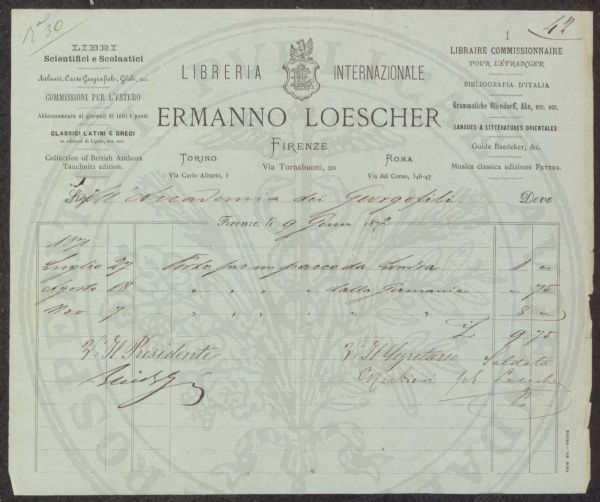 N° 30
42
LIBRI
Scientifici e Scolastici
Atlanti, Carte Geografiche, Globi, ecc.
COMMISSIONI PER L'ESTERO
Abbonamento ai giornali di tutti i paesi.
CLASSICI LATINI E GRECI
in edizioni di Lipsia, ecc. ecc.
Collection of British Authors
Tauchnitz edition.
LIBRERIA INTERNAZIONALE
ERMANNO LOESCHER
FIRENZE
Via Tornabuoni, 20
TORINO
Via Carlo Alberto, 5
ROMA
Via del Corso, 346-47
1
LIBRAIRE COMMISSIONNAIRE
POUR L'ÉTRANGER
BIBLIOGRAFIA D'ITALIA
Grammatiche Ollendorff, Ahn, ecc. ecc.
LANGUES & LITTÉRATURES ORIENTALES
Guide Baedeker, &c.
Musica classica edizioni PETERS.
Accademia dei Georgofili Deve
Firenze, li 9 1872
187
Luglio 27 Porto per un pacco da Londra 1 "
Agosto 18 " " " " dalla Germania " 75
Nov 7 " " " " " 8 "
£ 9 75
V° Il Presidente V° Il Segretario Saldato